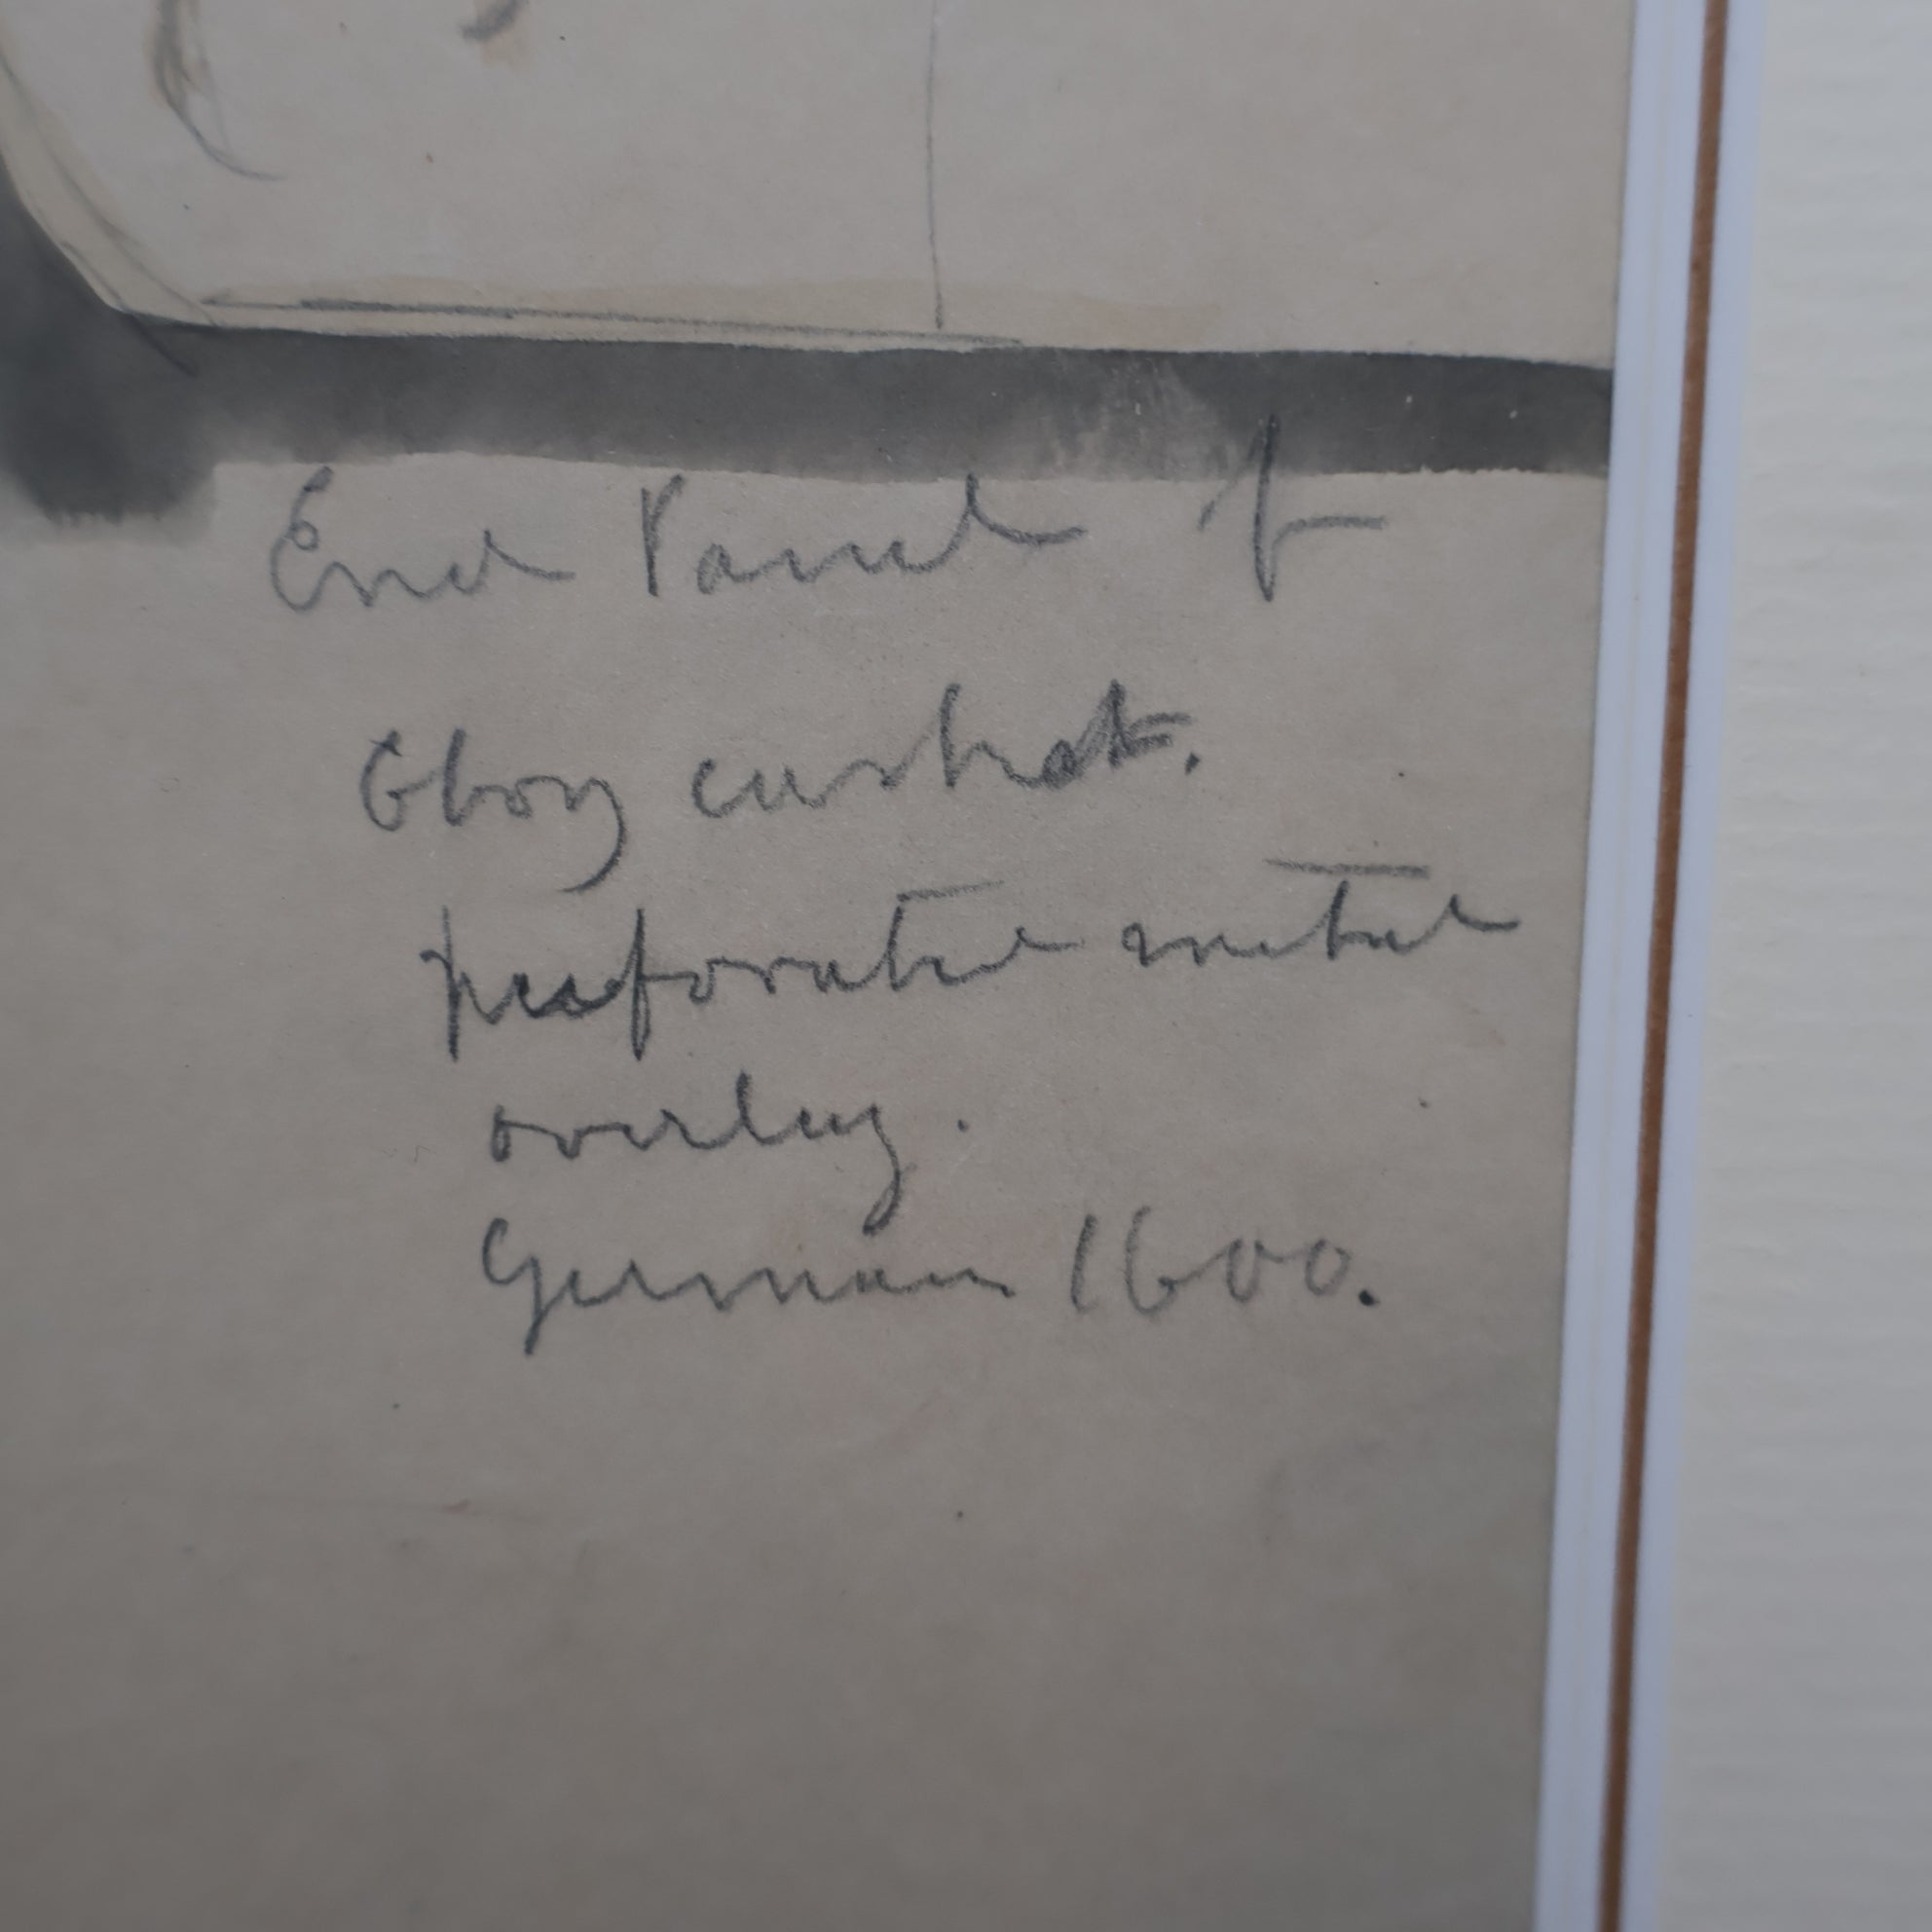 End Panel of
Ebony casket.
perforated metal
overlay.
German 1600.